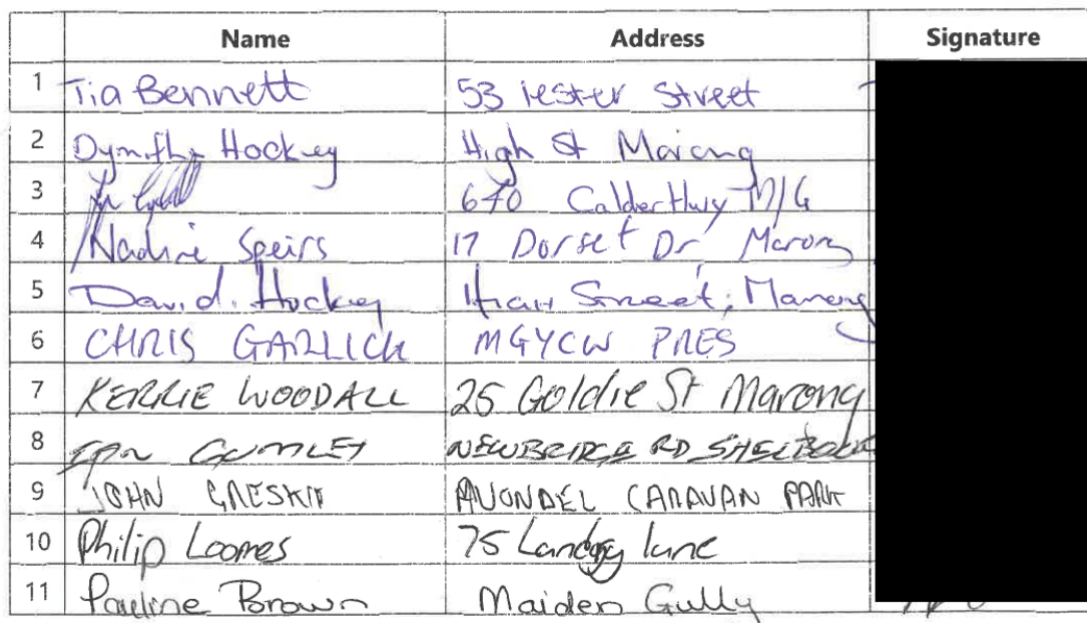 Name Address Signature
1 Tia Bennett 53 Lester Street
2 Hockey High St Marong
3 670 Calder Hwy M/G
4 Nadine Speirs 17 Dorset Dr Marong
5 David. Hockey High Street, Marong
6 CHRIS GARLICK MGYCW PRES
7 KERRIE WOODALL 25 Goldie St Marong
8 IAN GUMLEY NEWBRIDGE RD SHELBOURNE
9 JOHN AVONDEL CARAVAN PARK
10 Philip Loomes 75 lane
11 Pauline Brown Maiden Gully